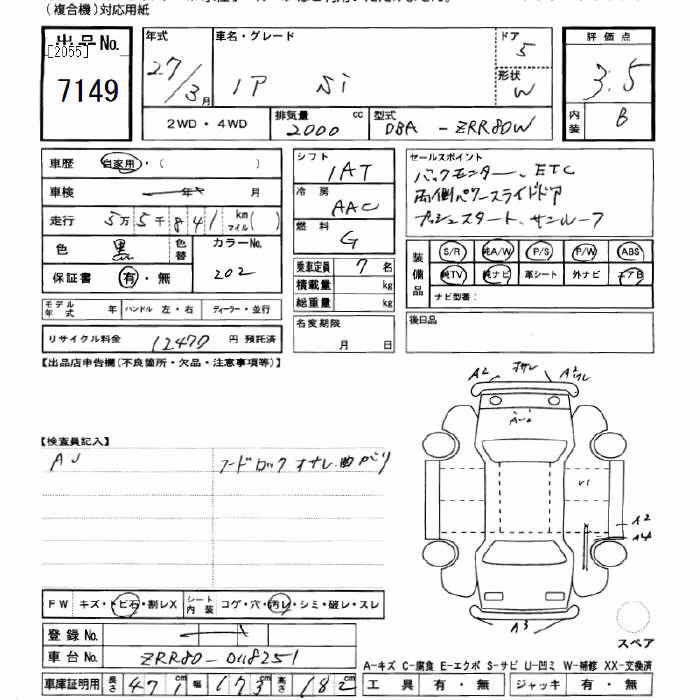 (複合機)対応用紙
出品No.
[2055]
7149
年式
27/3月
車名・グレード
1P Si
ドア
5
形状
W
評価点
3.5
内装
B
2WD・4WD
排気量
2000 cc
型式
DBA - ZRR80W
車歴 自家用・( )
車検 年 月
走行 5万5千841 km マイル( )
色 黒 色替 カラーNo. 202
保証書 有・無
モデル年式 年 ハンドル 左・右 ディーラー・並行
リサイクル料金 12470 円 預託済
シフト
IAT
冷房
AAC
燃料
G
乗車定員 7 名
積載量 kg
総重量 kg
名変期限
月 日
セールスポイント
バックモニター、ETC
両側パワースライドドア
プッシュスタート、サンルーフ
装備品
S/R 純A/W P/S P/W ABS
純TV 純ナビ 革シート 外ナビ エアB
ナビ型番:
後日品
【出品店申告欄(不良箇所・欠品・注意事項等)】
【検査員記入】
フードロック オサレ 曲がり
A2 オサレ A2
A2
U1
A2
A4
A3
スペア
FW キズ・トビ石・割レX シート内装 コゲ・穴・汚レ・シミ・破レ・スレ
登録No.
車台No. ZRR80-0118251
車庫証明用 長さ 471cm 幅 173cm 高さ 182cm
A-キズ C-腐食 E-エクボ S-サビ U-凹ミ W-補修 XX-交換済
工具 有・無 ジャッキ 有・無